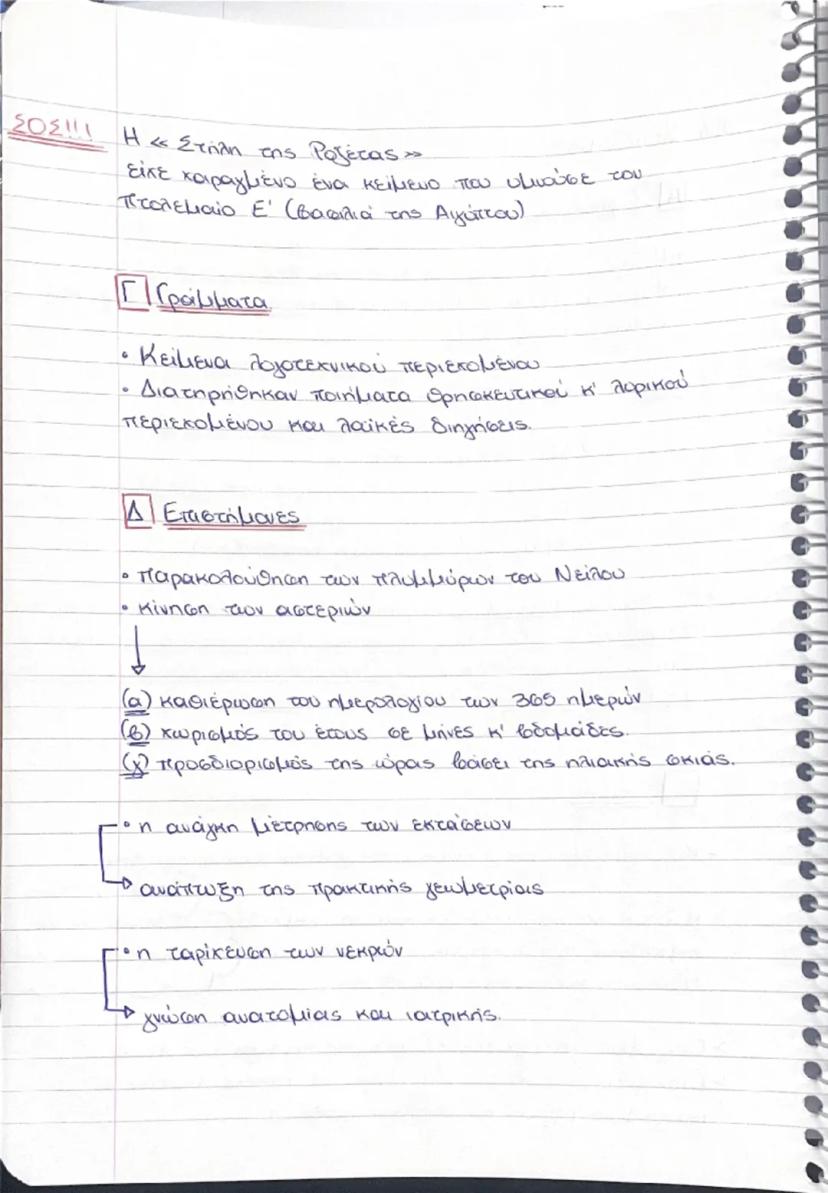 ΣΟΣ!!!
Η «Στήλη της Ροζέτας»
είχε χαραγμένο ένα κείμενο που υμνούσε τον
Πτολεμαίο Ε' (βασιλιά της Αιγύπτου)
Γ Γράμματα
• Κείμενα λογοτεχνικού περιεχομένου
• Διατηρήθηκαν ποιήματα θρησκευτικού κ' λυρικού
περιεχομένου και λαϊκές διηγήσεις.
Δ Επιστήμονες
• παρακολούθηση των πλυμμύρων του Νείλου
• κίνηση των αστεριών
(α) καθιέρωση του ημερολογίου των 365 ημερών
(β) χωρισμός του έτους σε μήνες κ' βδομάδες.
(γ) προσδιορισμός της ώρας βάσει της ηλιακής σκιάς.
• η ανάγκη μέτρησης των εκτάσεων
ανάπτυξη της πρακτικής γεωμετρίας
• η ταρίχευση των νεκρών
γνώση ανατομίας και ιατρικής.